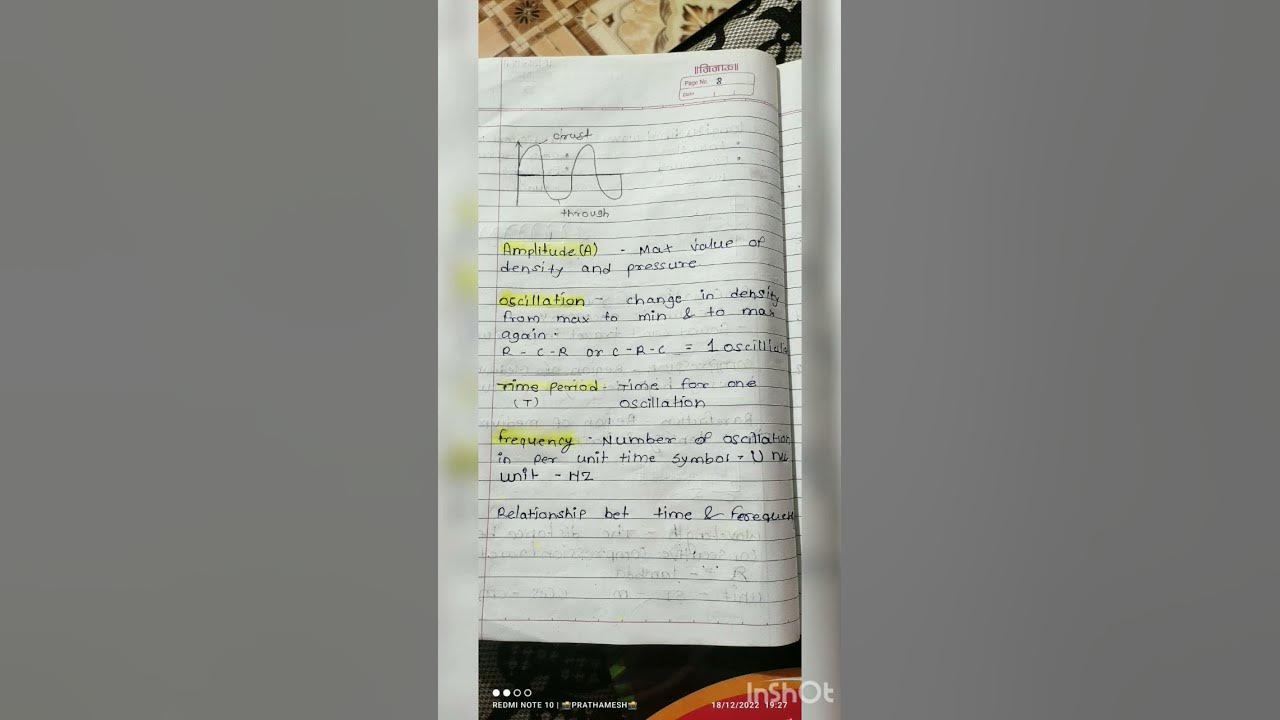 ॥जिजाऊ॥
Page No. 8
Date
crust
through
Amplitude (A) - Max value of
density and pressure
oscillation - change in density
from max to min & to max
again.
R - C - R or C - R - C = 1
Time period - Time for one
(T) oscillation
frequency - Number of
in per unit time symbol - U
unit - HZ
Relationship bet time &
InShOt
REDMI NOTE 10 | PRATHAMESH
18/12/2022 19:27